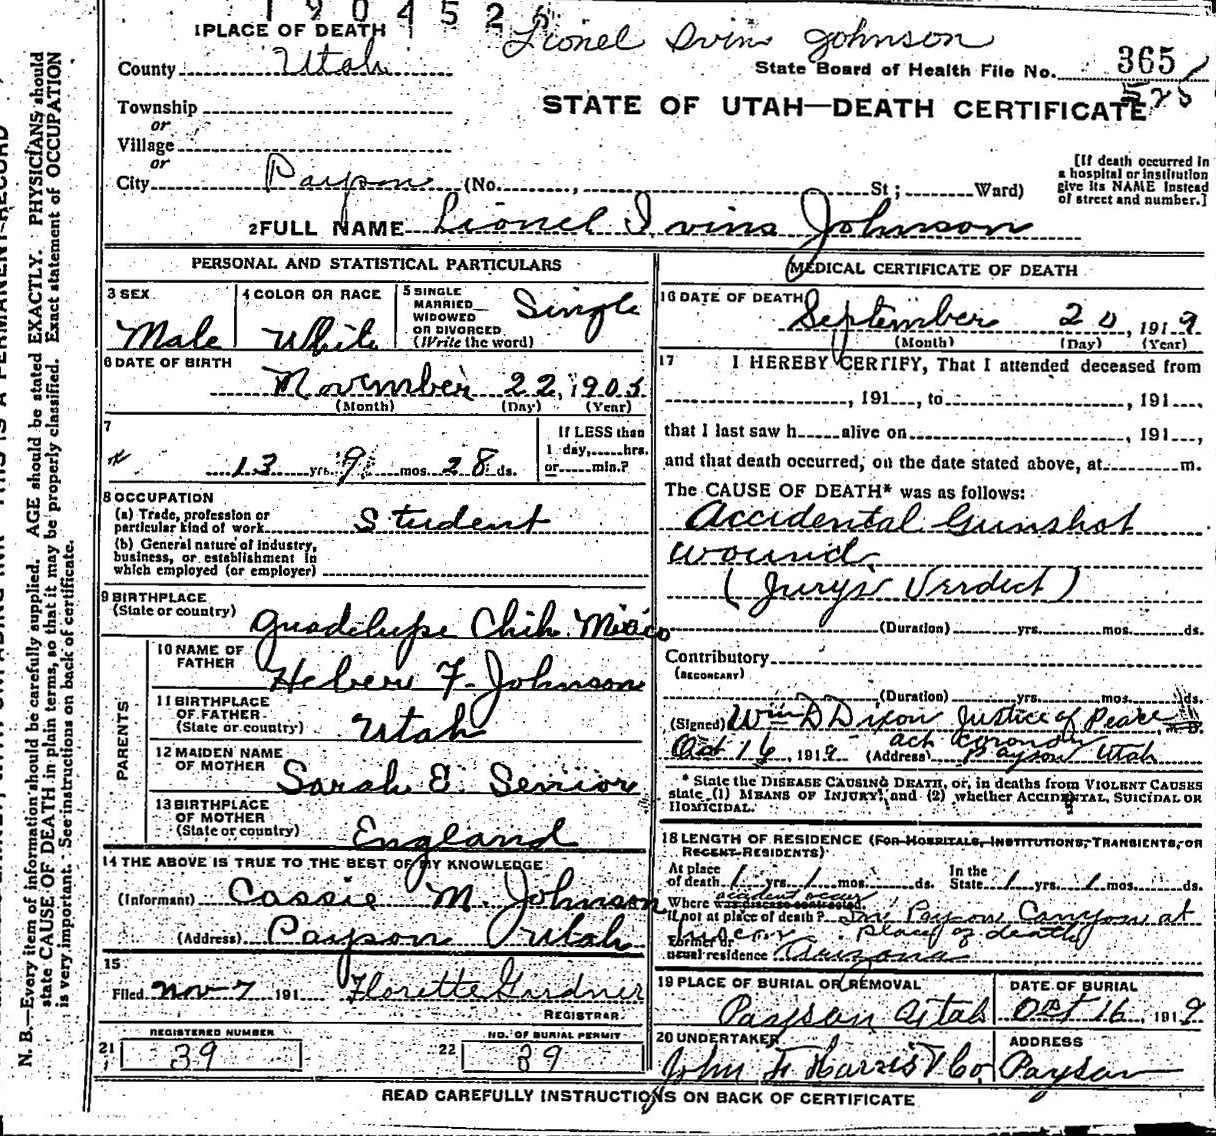 190452
1 PLACE OF DEATH
Lionel Ivins Johnson
County Utah
State Board of Health File No. 365
525
Township
or
STATE OF UTAH—DEATH CERTIFICATE
Village
or
City Payson (No. , St; Ward)
[If death occurred in
a hospital or institution
give its NAME instead
of street and number.]
2 FULL NAME Lionel Ivins Johnson
PERSONAL AND STATISTICAL PARTICULARS
3 SEX
Male
4 COLOR OR RACE
White
5 SINGLE
MARRIED
WIDOWED
OR DIVORCED
(Write the word)
Single
6 DATE OF BIRTH
November 22, 1905
(Month) (Day) (Year)
7
13 yrs. 9 mos. 28 ds.
If LESS than
1 day, hrs.
or min.?
8 OCCUPATION
(a) Trade, profession or
particular kind of work Student
(b) General nature of industry,
business, or establishment in
which employed (or employer)
9 BIRTHPLACE
(State or country) Guadelupe Chih. Mexico
PARENTS
10 NAME OF
FATHER Heber F. Johnson
11 BIRTHPLACE
OF FATHER
(State or country) Utah
12 MAIDEN NAME
OF MOTHER Sarah E. Senior
13 BIRTHPLACE
OF MOTHER
(State or country) England
14 THE ABOVE IS TRUE TO THE BEST OF MY KNOWLEDGE
(Informant) Cassie M. Johnson
(Address) Payson Utah
15
Filed Nov 7 191 Florette Gardner
REGISTRAR
REGISTERED NUMBER
21 39
NO. OF BURIAL PERMIT
22 39
MEDICAL CERTIFICATE OF DEATH
16 DATE OF DEATH
September 20, 1919
(Month) (Day) (Year)
17 I HEREBY CERTIFY, That I attended deceased from
, 191 , to , 191 ,
that I last saw h alive on , 191 ,
and that death occurred, on the date stated above, at m.
The CAUSE OF DEATH* was as follows:
Accidental Gunshot
wound.
(Jurys Verdict)
(Duration) yrs. mos. ds.
Contributory
(SECONDARY)
(Duration) yrs. mos. ds.
(Signed) Wm D Dixon Justice of Peace
act coroner
Oct 16, 1919 (Address) Payson Utah
* State the DISEASE CAUSING DEATH, or, in deaths from VIOLENT CAUSES
state (1) MEANS OF INJURY; and (2) whether ACCIDENTAL, SUICIDAL OR
HOMICIDAL.
18 LENGTH OF RESIDENCE (FOR HOSPITALS, INSTITUTIONS, TRANSIENTS, OR
RECENT RESIDENTS)
At place
of death 1 yrs. 1 mos. ds.
In the
State 1 yrs. 1 mos. ds.
accident occur
Where was disease contracted,
if not at place of death? In Payson Canyon at
place of death
Former or
usual residence Arizona
19 PLACE OF BURIAL OR REMOVAL
Payson Utah
DATE OF BURIAL
Oct 16, 1919
20 UNDERTAKER
John F Harris & Co
ADDRESS
Payson
READ CAREFULLY INSTRUCTIONS ON BACK OF CERTIFICATE
N. B.—Every item of information should be carefully supplied. AGE should be stated EXACTLY. PHYSICIANS should
state CAUSE OF DEATH in plain terms, so that it may be properly classified. Exact statement of OCCUPATION
is very important. See instructions on back of certificate.
THIS IS A PERMANENT RECORD